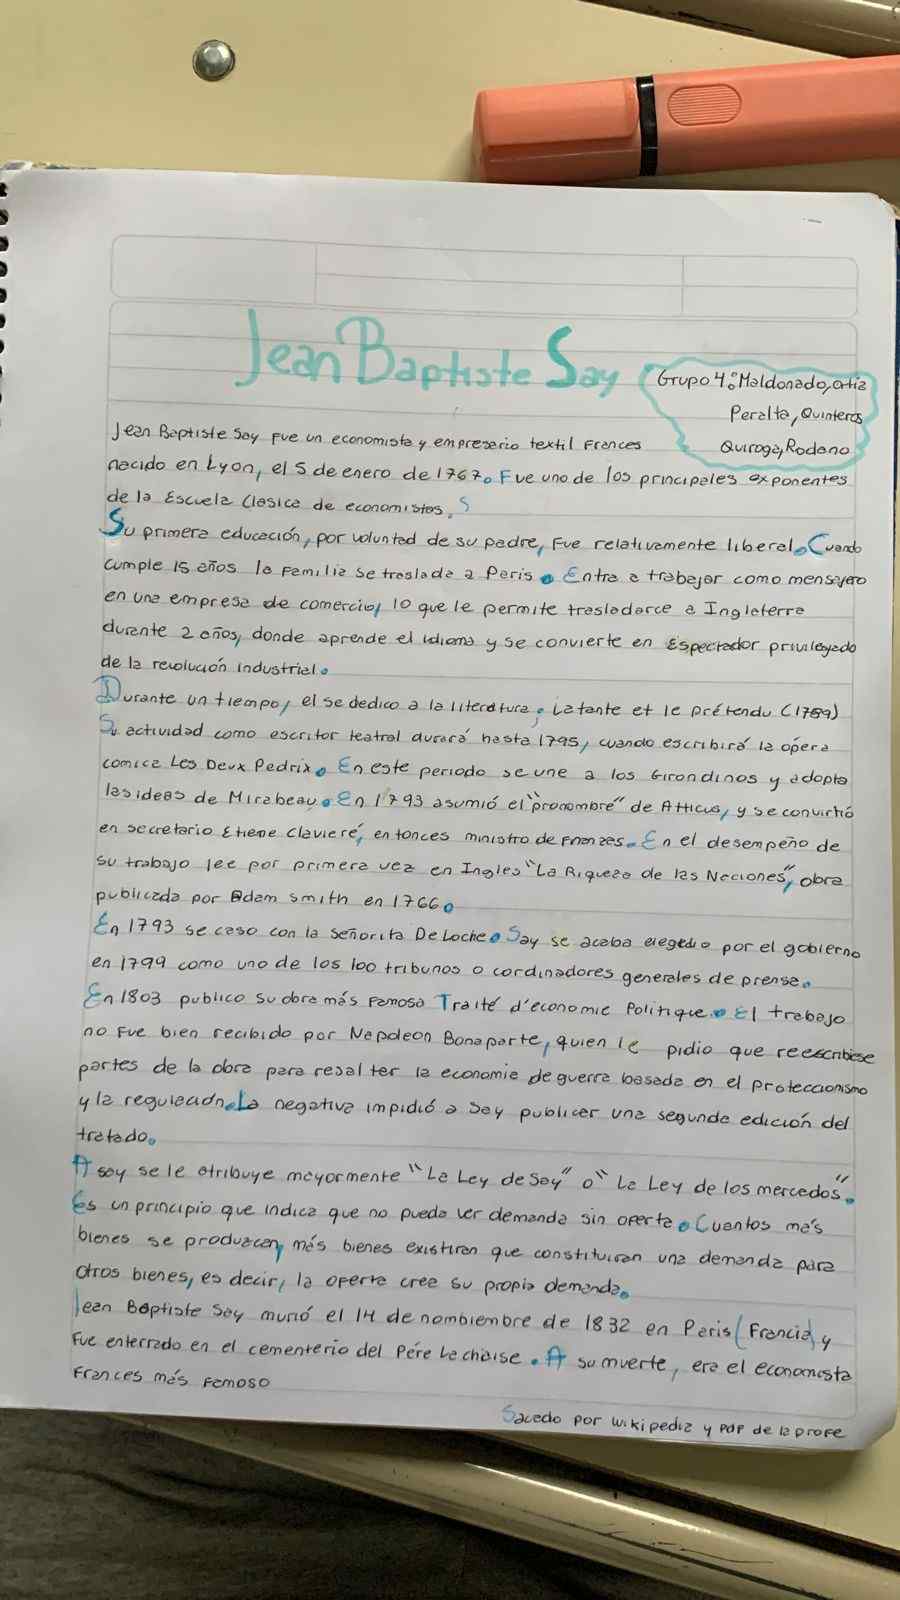 Jean Baptiste Say
Grupo 4: Maldonado, Ortiz
Peralta, Quinteros
Quiroga, Rodano
Jean Baptiste Say fue un economista y empresario textil Frances
nacido en Lyon, el 5 de enero de 1767. Fue uno de los principales exponentes
de la Escuela Clasica de economistas. S
Su primera educación, por voluntad de su padre, fue relativamente liberal. Cuando
cumple 15 años la familia se traslada a Paris. Entra a trabajar como mensajero
en una empresa de comercio, lo que le permite trasladarce a Inglaterra
durante 2 años, donde aprende el idioma y se convierte en espectador privilegiado
de la revolución industrial.
Durante un tiempo, el se dedico a la literatura; Latante et le prétendu (1789)
Su actividad como escritor teatral durará hasta 1795, cuando escribirá la opera
comica Les Deux Pedrix. En este periodo se une a los Girondinos y adopta
las ideas de Mirabeau. En 1793 asumió el "pronombre" de Atticus, y se convirtió
en secretario Etiene Claviere, entonces ministro de finanzas. En el desempeño de
su trabajo lee por primera vez en Ingles "La Riqueza de las Naciones", obra
publicada por Adam Smith en 1766.
En 1793 se caso con la señorita De Loche. Say se acaba elegedio por el gobierno
en 1799 como uno de los 100 tribunos o cordinadores generales de prensa.
En 1803 publico su obra más famosa Traité d'economie Politique. El trabajo
no fue bien recibido por Napoleon Bonaparte, quien le pidio que reescribiese
partes de la obra para resalter la economia de guerra basada en el proteccionismo
y la regulación. La negativa impidió a Say publicar una segunda edición del
tratado.
A say se le atribuye mayormente "La Ley de Say" o "La Ley de los mercados".
Es un principio que indica que no puede ver demanda sin oferta. Cuantos más
bienes se produzcan, más bienes existiran que constituiran una demanda para
otros bienes, es decir, la oferta cree su propia demanda.
Jean Baptiste Say murió el 14 de nombiembre de 1832 en Paris (Francia) y
fue enterrado en el cementerio del Pére Lachaise. A su muerte, era el economista
Frances más famoso
Sacado por wikipedia y PDF de la profe